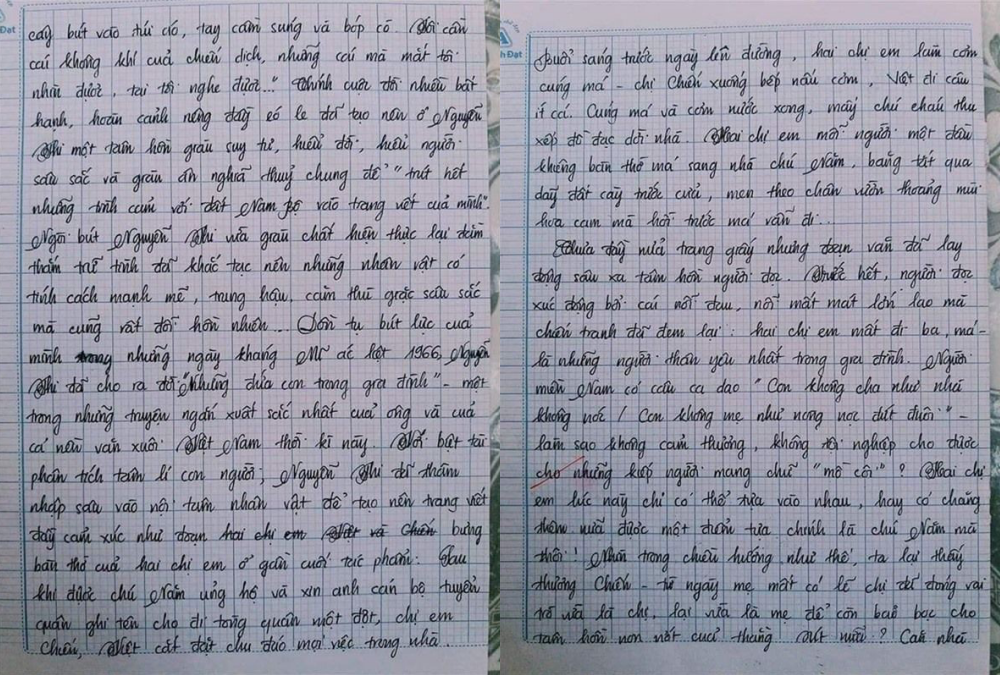 cây bút vào túi áo, tay cầm súng và bóp cò. Tôi cần
cái không khí của chiến dịch, những cái mà mắt tôi
nhìn được, tai tôi nghe được..." Chính cuộc đời nhiều bất
hạnh, hoàn cảnh riêng đầy éo le đã tạo nên ở Nguyễn
Thi một tâm hồn giàu suy tư, hiểu đời, hiểu người
sâu sắc và giàu ân nghĩa thuỷ chung để "trút hết
những tình cảm với đất Nam Bộ vào trang viết của mình".
Ngòi bút Nguyễn Thi vừa giàu chất hiện thực lại đằm
thắm trữ tình đã khắc tạc nên những nhân vật có
tính cách mạnh mẽ, trung hậu, căm thù giặc sâu sắc
mà cũng rất đỗi hồn nhiên... Dồn tụ bút lực của
mình trong những ngày kháng Mĩ ác liệt 1966, Nguyễn
Thi đã cho ra đời "Những đứa con trong gia đình" - một
trong những truyện ngắn xuất sắc nhất của ông và của
cả nền văn xuôi Việt Nam thời kì này. Với biệt tài
phân tích tâm lí con người, Nguyễn Thi đã thâm
nhập sâu vào nội tâm nhân vật để tạo nên trang viết
đầy cảm xúc như đoạn hai chị em Việt và Chiến bưng
bàn thờ của hai chị em ở gần cuối tác phẩm: Sau
khi được chú Năm ủng hộ và xin anh cán bộ tuyển
quân ghi tên cho đi tòng quân một đợt, chị em
Chiến, Việt cắt đặt chu đáo mọi việc trong nhà.
Đạt
Buổi sáng trước ngày lên đường, hai chị em làm cơm
cúng má - chị Chiến xuống bếp nấu cơm, Việt đi câu
ít cá. Cúng má và cơm nước xong, mấy chú cháu thu
xếp đồ đạc dời nhà. Hai chị em mỗi người một đầu
khiêng bàn thờ má sang nhà chú Năm, băng tắt qua
dãy đất cày trước cửa, men theo chân vườn thoảng mùi
hoa cam mà hồi trước má vẫn đi...
Chưa đầy nửa trang giấy nhưng đoạn văn đã lay
động sâu xa tâm hồn người đọc. Trước hết, người đọc
xúc động bởi cái nỗi đau, nỗi mất mát lớn lao mà
chiến tranh đã đem lại: hai chị em mất đi ba, má -
là những người thân yêu nhất trong gia đình. Người
miền Nam có câu ca dao "Con không cha như nhà
không nóc / Con không mẹ như nòng nọc đứt đuôi" -
làm sao không cảm thương, không tội nghiệp cho được
cho những kiếp người mang chữ "mồ côi"? Hai chị
em lúc này chỉ có thể tựa vào nhau, hay có chăng
thêm nữa được một điểm tựa chính là chú Năm mà
thôi! Nhìn trong chiều hướng như thế, ta lại thấy
thương Chiến - từ ngày mẹ mất có lẽ chị đã đóng vai
trò vừa là chị, lại vừa là mẹ để còn bao bọc cho
tâm hồn non nớt của thằng Út nữa? Căn nhà